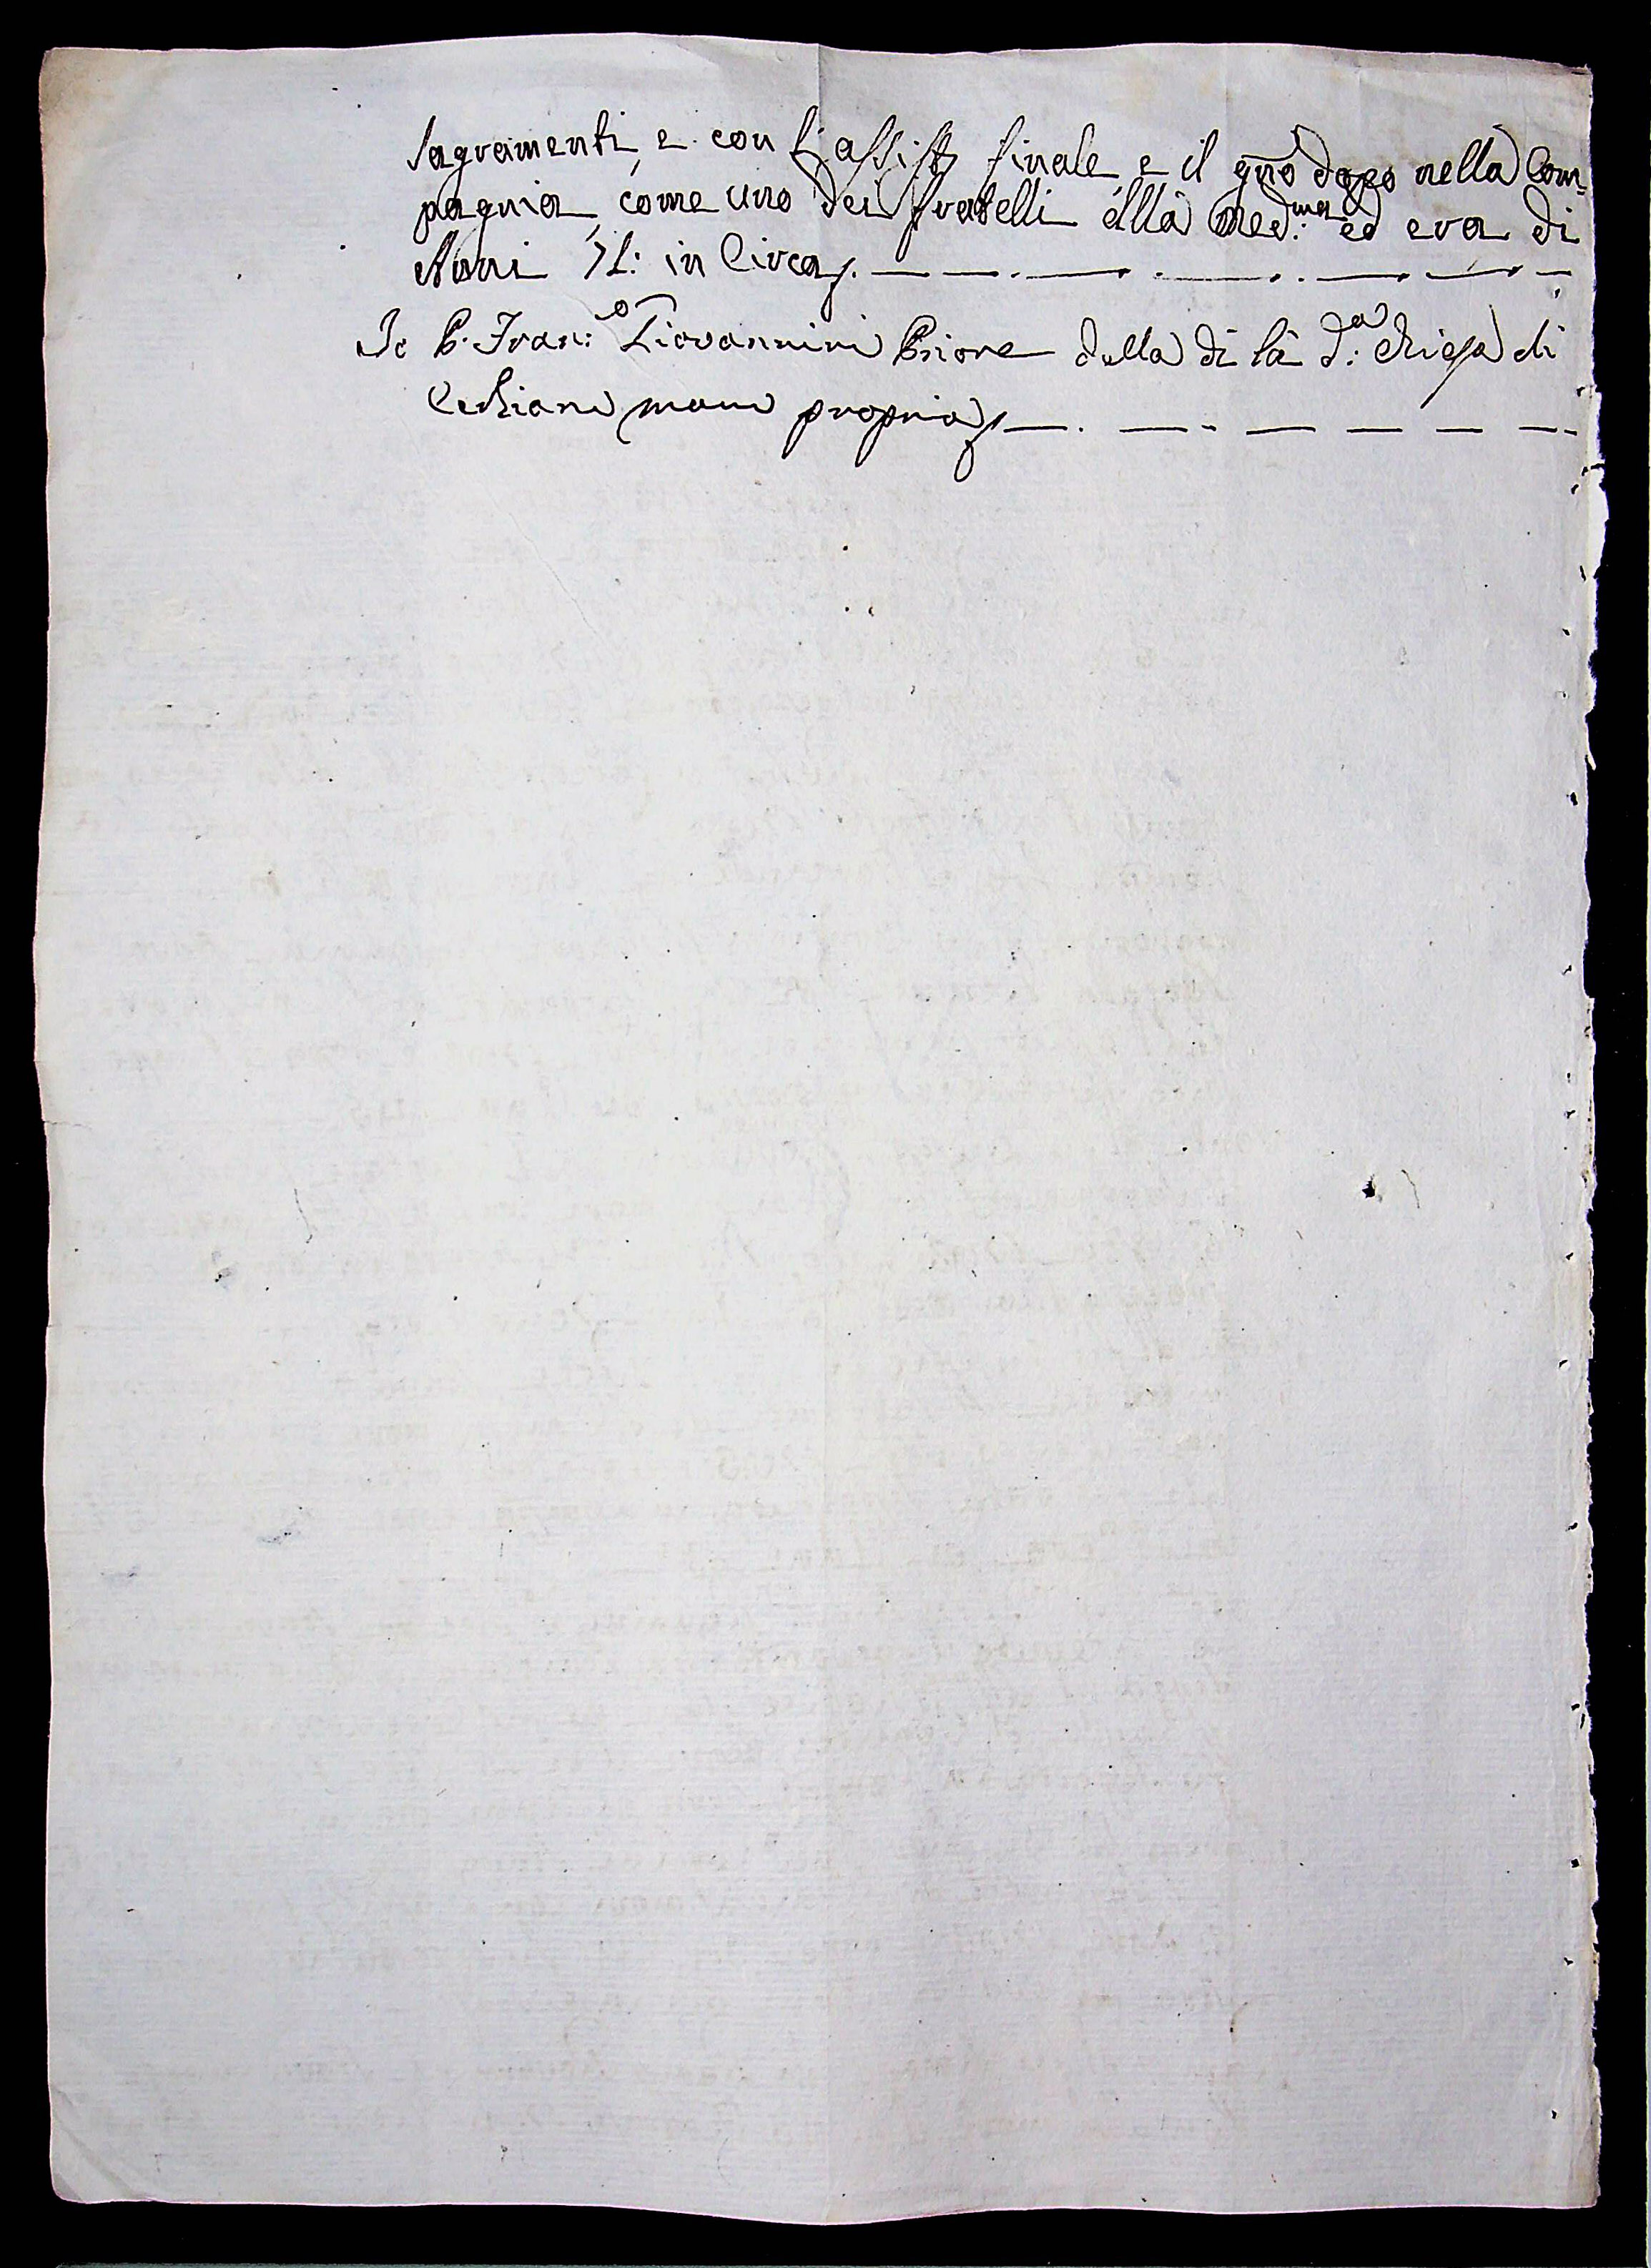 Sagramenti, e con l'assist.ᵃ finale, e il gno dopo nella Com-
pagnia, come uno dei fratelli alla Med:ᵐᵃ ed era di
Anni 71: in Circa
Io P. Fran:ᵒ Giovannini Priore della di là d:ᵃ Chiesa di
mano propria